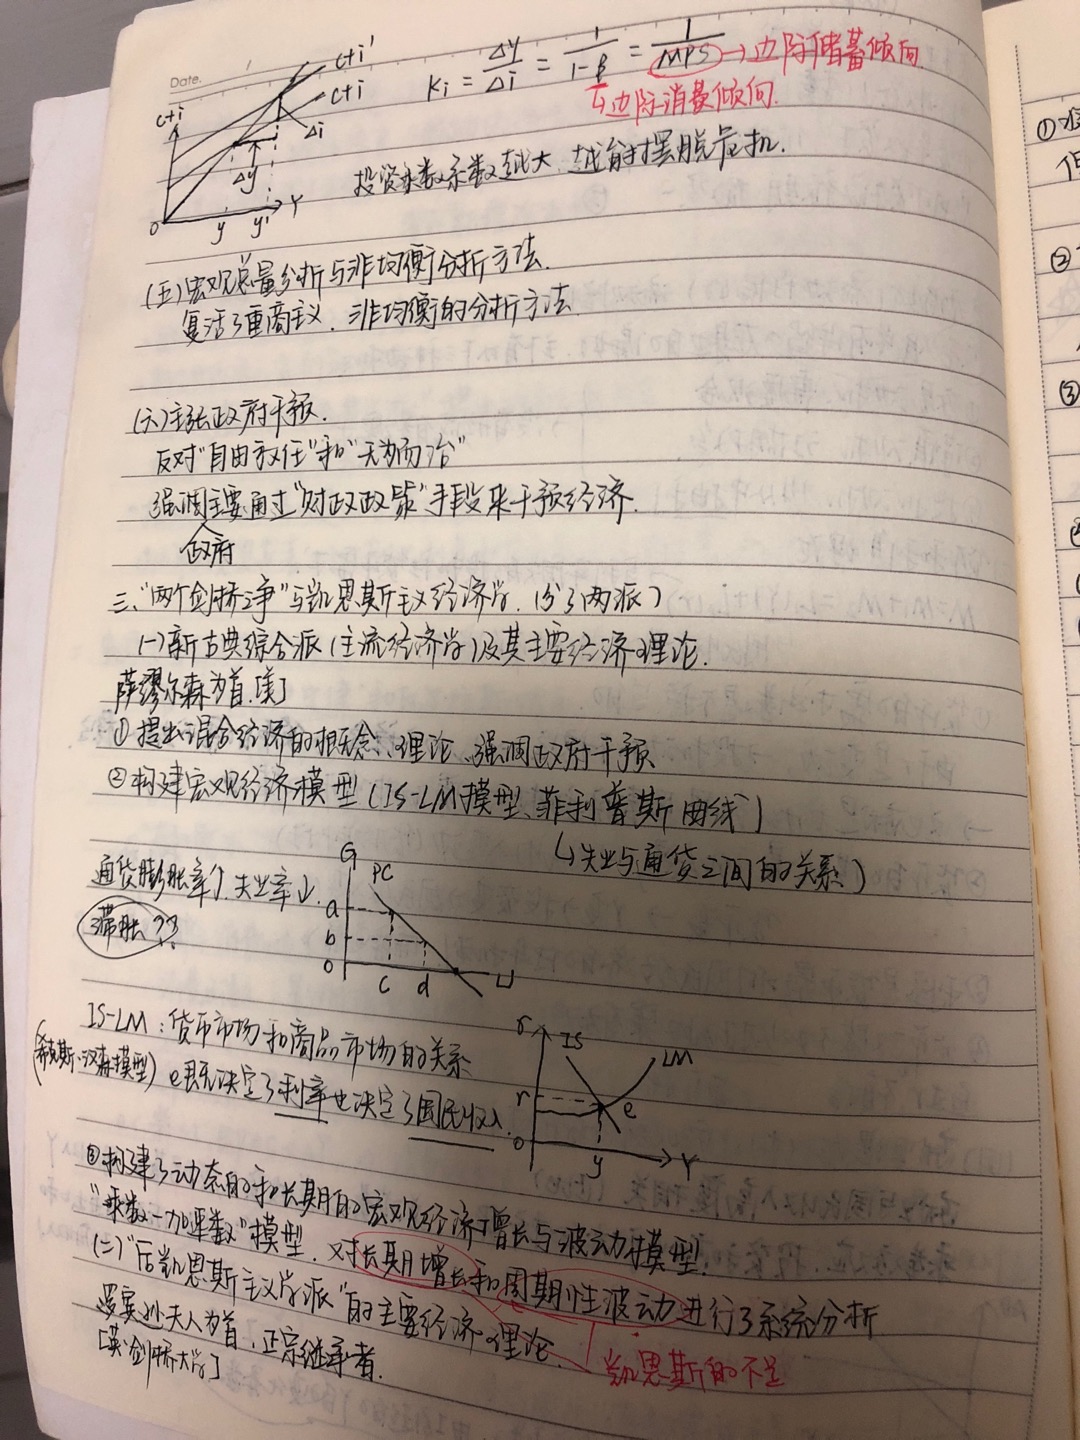 Date.
c+i
c+i'
c+i
Δi
Δy
o y y' Y
Ki = Δy/Δi = 1/1-β = 1/MPS → 边际储蓄倾向
↳边际消费倾向.
投资乘数系数越大,越能摆脱危机.
(五)宏观总量分析与非均衡分析方法.
复活了重商主义、非均衡的分析方法.
(六)主张政府干预.
反对"自由放任"和"无为而治"
强调主要通过"财政政策"手段来干预经济.
政府
三、"两个剑桥之争"与凯恩斯主义经济学.(分了两派)
(一)新古典综合派(主流经济学)及其主要经济理论.
萨缪尔森为首.[美]
①提出混合经济的概念、理论、强调政府干预
②构建宏观经济模型(IS-LM模型、菲利普斯曲线)
(↳失业与通货之间的关系)
通货膨胀率↑.失业率↓.
滞胀??
G PC
a
b
o c d U
IS-LM:货币市场和商品市场的关系
(希克斯-汉森模型) e既决定了利率也决定了国民收入.
r IS LM
r e
o y Y
③构建了动态的和长期的宏观经济增长与波动模型.
"乘数-加速数"模型.对长期增长和周期性波动进行了系统分析
凯恩斯的不足
(二)"后凯恩斯主义学派"的主要经济理论.
罗宾逊夫人为首,正宗继承者.
[英·剑桥大学]
①
②
③